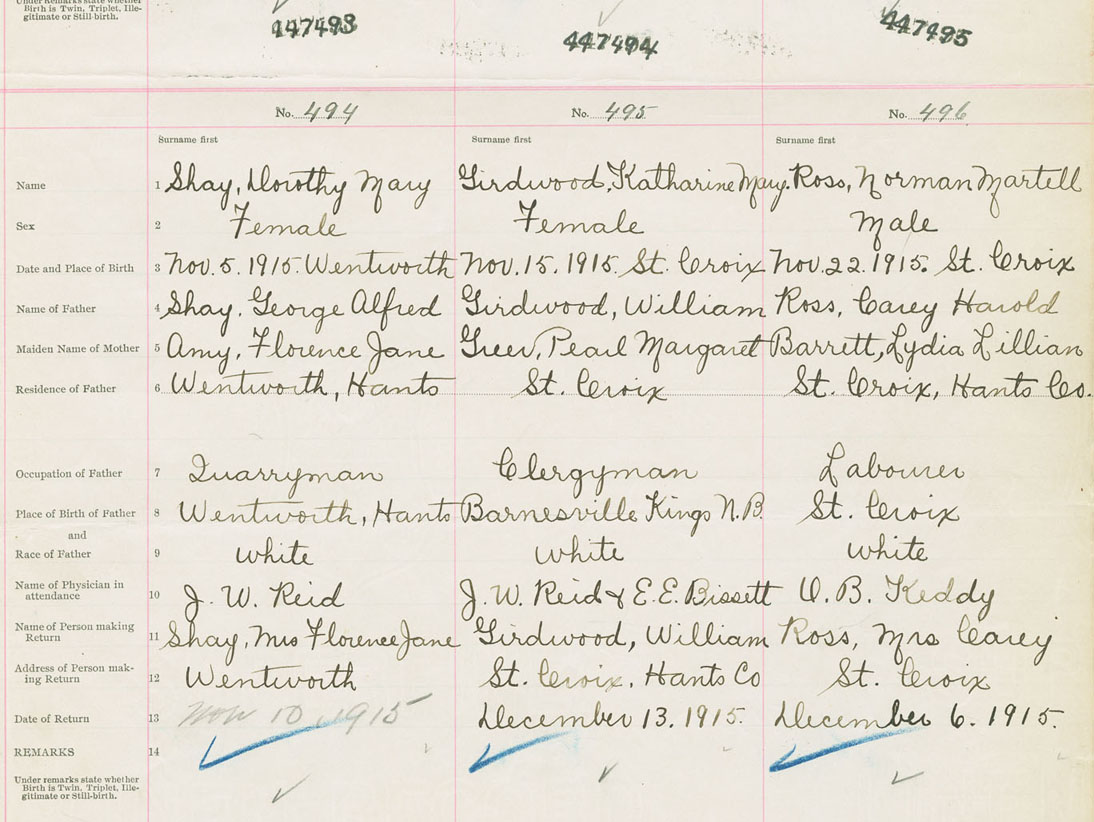 Under Remarks state whether
Birth is Twin, Triplet, Ille-
gitimate or Still-birth.
447493 447494 447495
No. 494 No. 495 No. 496
Surname first Surname first Surname first
Name 1 Shay, Dorothy Mary Girdwood, Katharine Mary. Ross, Norman Martell
Sex 2 Female Female Male
Date and Place of Birth 3 Nov. 5. 1915. Wentworth Nov. 15. 1915. St. Croix Nov. 22. 1915. St. Croix
Name of Father 4 Shay, George Alfred Girdwood, William Ross, Carey Harold
Maiden Name of Mother 5 Amy, Florence Jane Greer, Pearl Margaret Barrett, Lydia Lillian
Residence of Father 6 Wentworth, Hants St. Croix St. Croix, Hants Co.
Occupation of Father 7 Quarryman Clergyman Labourer
Place of Birth of Father 8 Wentworth, Hants Barnesville Kings N.B. St. Croix
and
Race of Father 9 white white white
Name of Physician in
attendance 10 J. W. Reid J. W. Reid & E. E. Bissett O. B. Keddy
Name of Person making
Return 11 Shay, Mrs Florence Jane Girdwood, William Ross, Mrs Carey
Address of Person mak-
ing Return 12 Wentworth St. Croix, Hants Co St. Croix
Date of Return 13 Nov 10, 1915 December 13. 1915. December 6. 1915.
REMARKS 14
Under remarks state whether
Birth is Twin, Triplet, Ille-
gitimate or Still-birth.